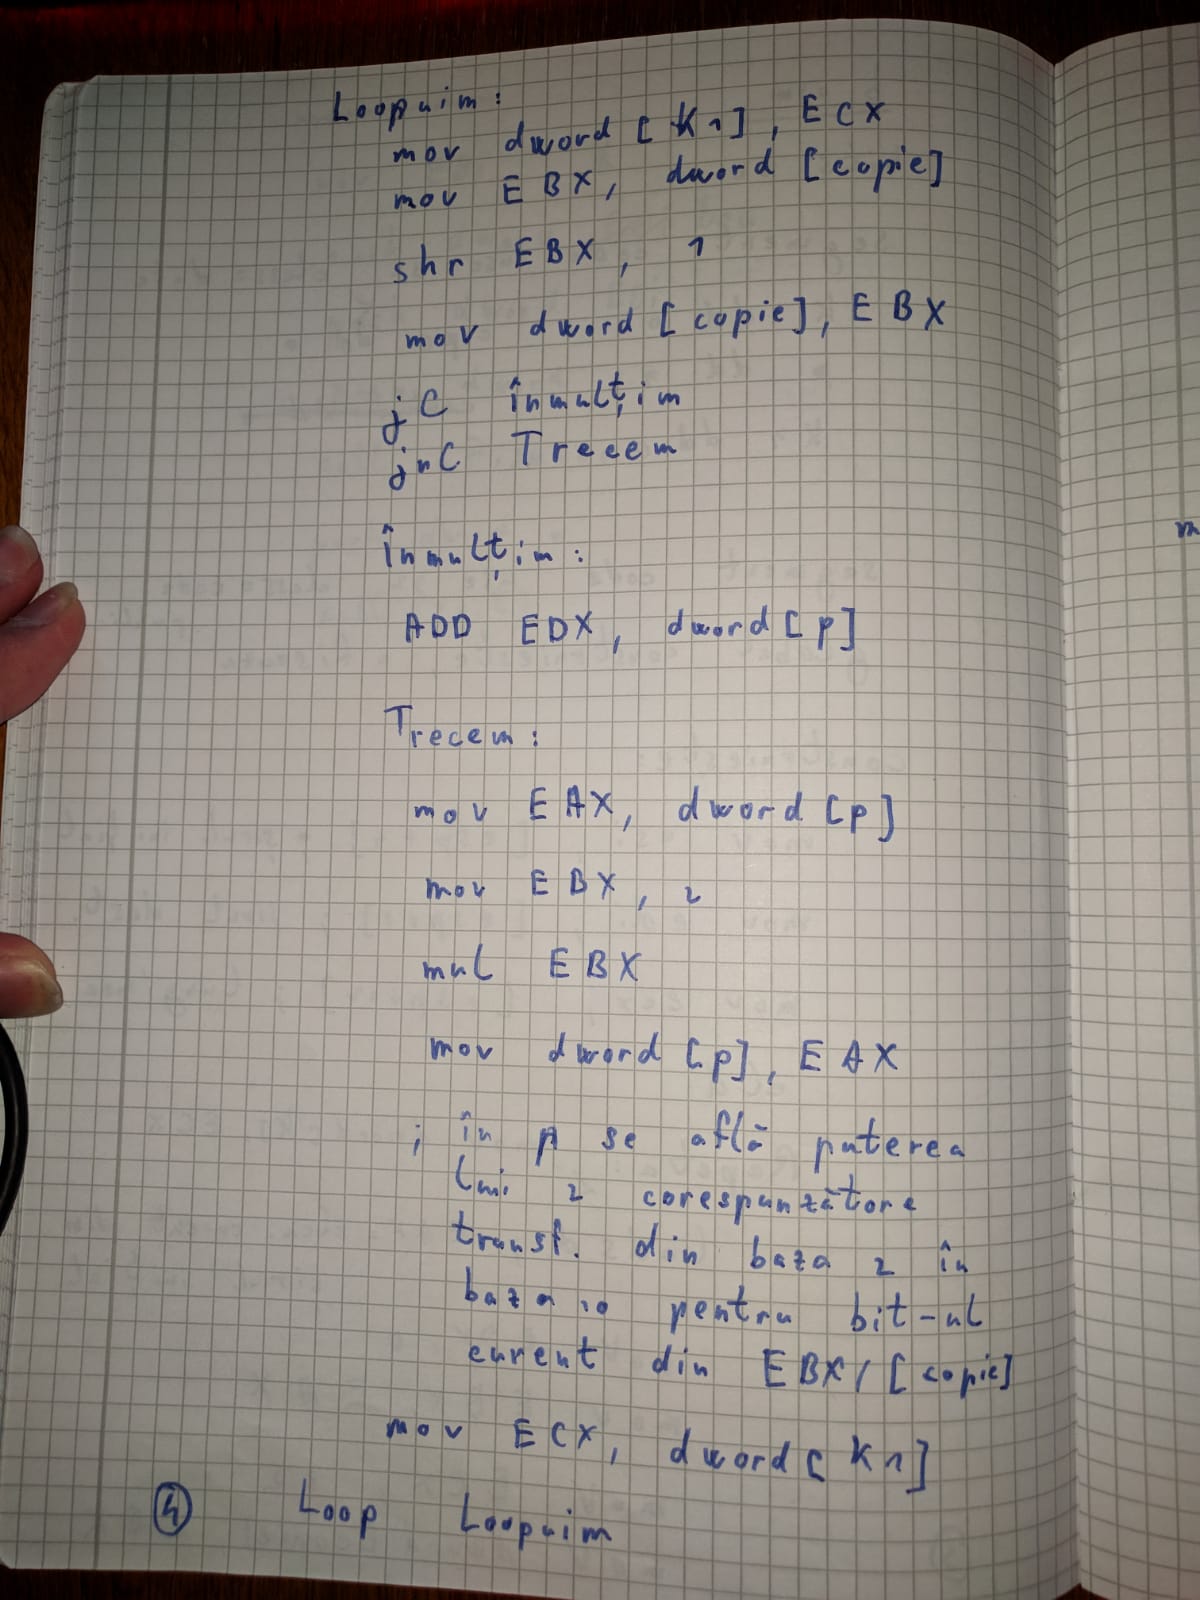 Loopuim:
mov dword [K1], ECX
mov EBX, dword [copie]
shr EBX, 1
mov dword [copie], EBX
jC înmulțim
jnC Trecem
înmulțim:
ADD EDX, dword [p]
Trecem:
mov EAX, dword [p]
mov EBX, 2
mul EBX
mov dword [p], EAX
; în p se află puterea
lui 2 corespunzătore
transf. din baza 2 în
baza 10 pentru bit-ul
curent din EBX/[copie]
mov ECX, dword [K1]
④ Loop Loopuim
m